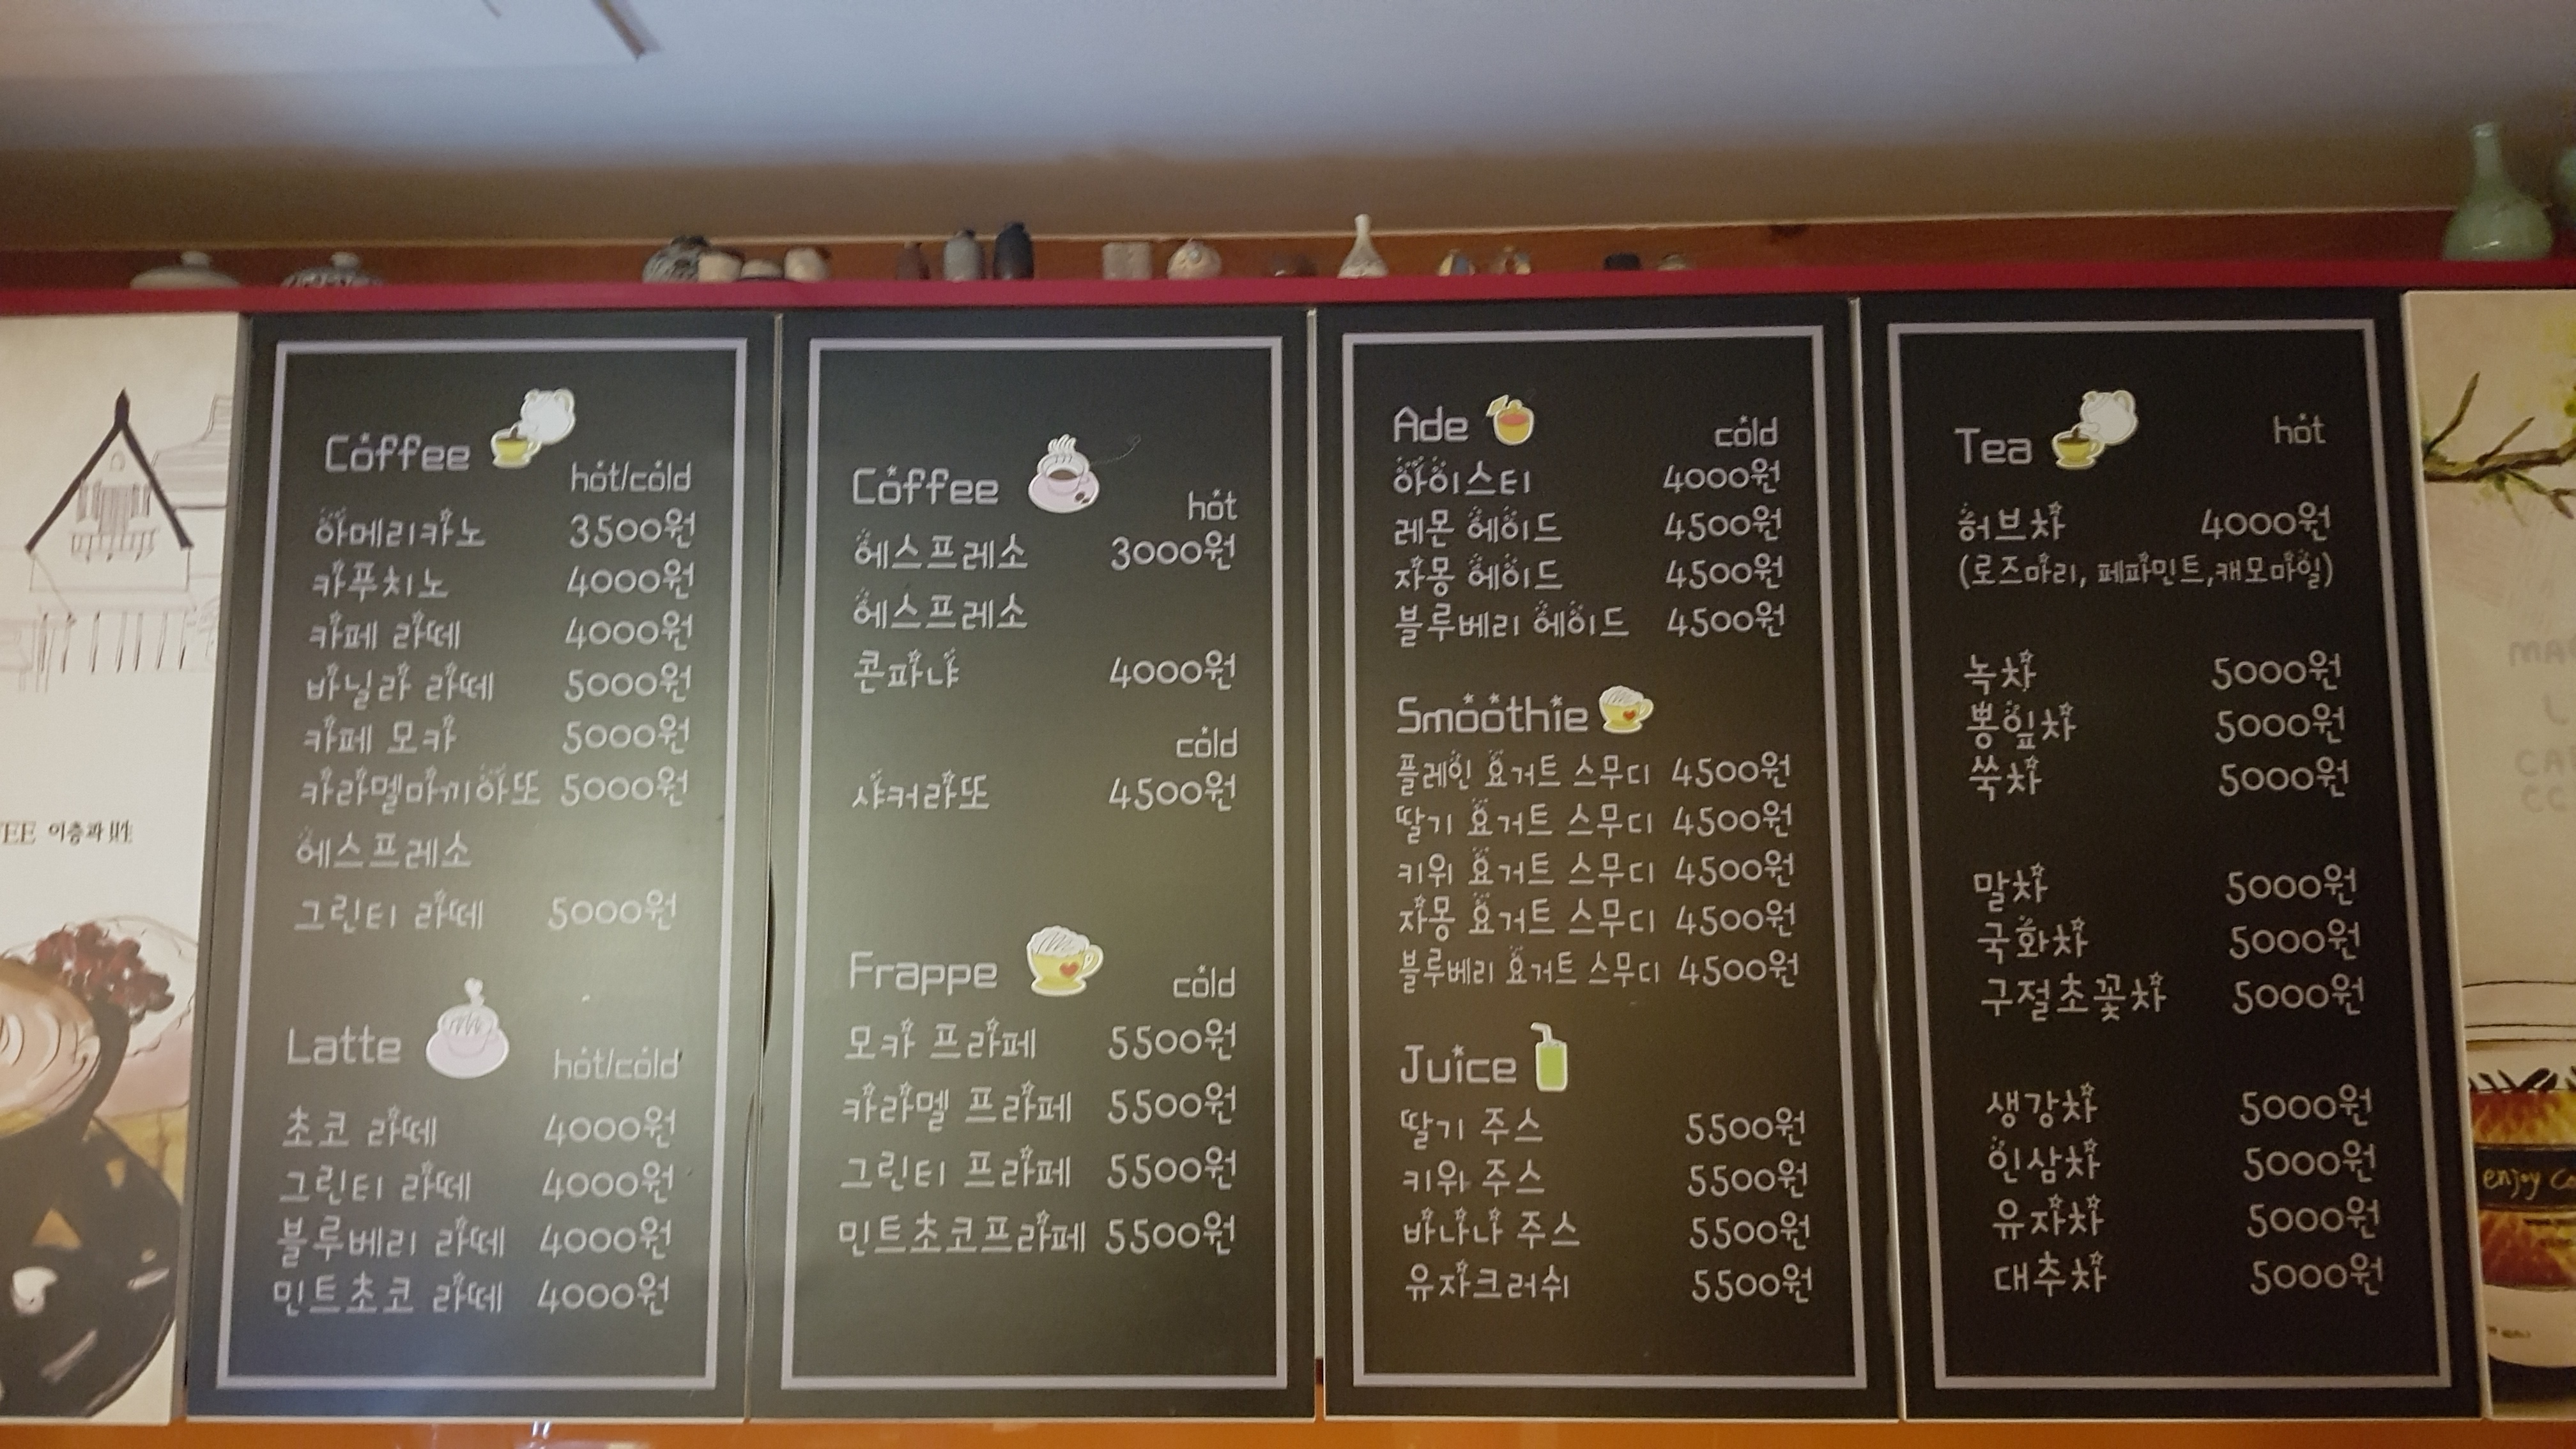 Coffee
hot/cold
아메리카노 3500원
카푸치노 4000원
카페 라떼 4000원
바닐라 라떼 5000원
카페 모카 5000원
카라멜마끼아또 5000원
에스프레소
그린티 라떼 5000원
Latte
hot/cold
초코 라떼 4000원
그린티 라떼 4000원
블루베리 라떼 4000원
민트초코 라떼 4000원
Coffee
hot
에스프레소 3000원
에스프레소
콘파냐 4000원
cold
샤커라또 4500원
Frappe
cold
모카 프라페 5500원
카라멜 프라페 5500원
그린티 프라페 5500원
민트초코프라페 5500원
Ade
cold
아이스티 4000원
레몬 에이드 4500원
자몽 에이드 4500원
블루베리 에이드 4500원
Smoothie
플레인 요거트 스무디 4500원
딸기 요거트 스무디 4500원
키위 요거트 스무디 4500원
자몽 요거트 스무디 4500원
블루베리 요거트 스무디 4500원
Juice
딸기 주스 5500원
키위 주스 5500원
바나나 주스 5500원
유자크러쉬 5500원
Tea
hot
허브차 4000원
(로즈마리, 페파민트,캐모마일)
녹차 5000원
뽕잎차 5000원
쑥차 5000원
말차 5000원
국화차 5000원
구절초꽃차 5000원
생강차 5000원
인삼차 5000원
유자차 5000원
대추차 5000원
enjoy